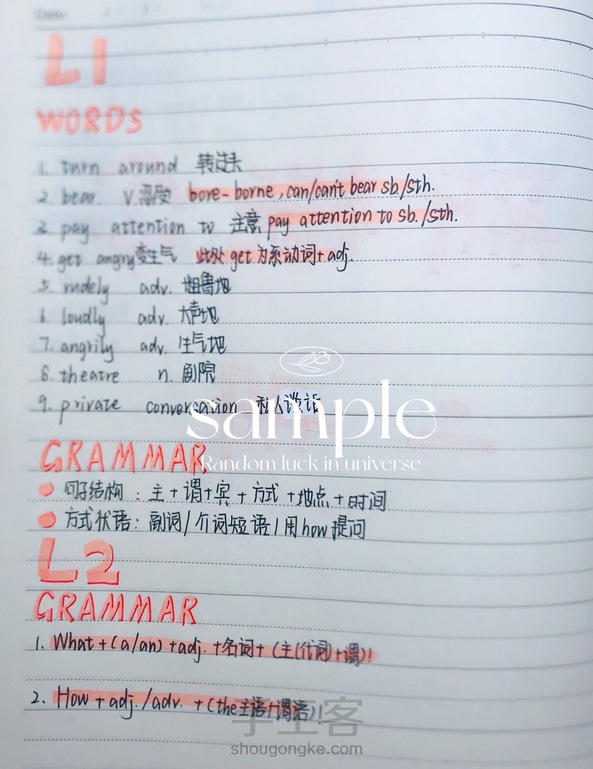 Date:
L1
WORDS
1. turn around 转过头
2. bear. v.忍受 bore-borne, can/can't bear sb./sth.
3. pay attention to 注意 pay attention to sb./sth.
4. get angry变生气 此处 get 为系动词+adj.
5. rudely adv. 粗鲁地
6. loudly adv. 大声地
7. angrily adv. 生气地
8. theatre n. 剧院
9. private conversation 私人谈话
sample
Random luck in universe
GRAMMAR
句子结构：主+谓+宾+方式+地点+时间
方式状语：副词/介词短语/用how提问
L2
GRAMMAR
1. What+(a/an)+adj.+名词+(主(代词)+谓)!
2. How+adj./adv. +(the主语+谓语)!
手工客
shougongke.com